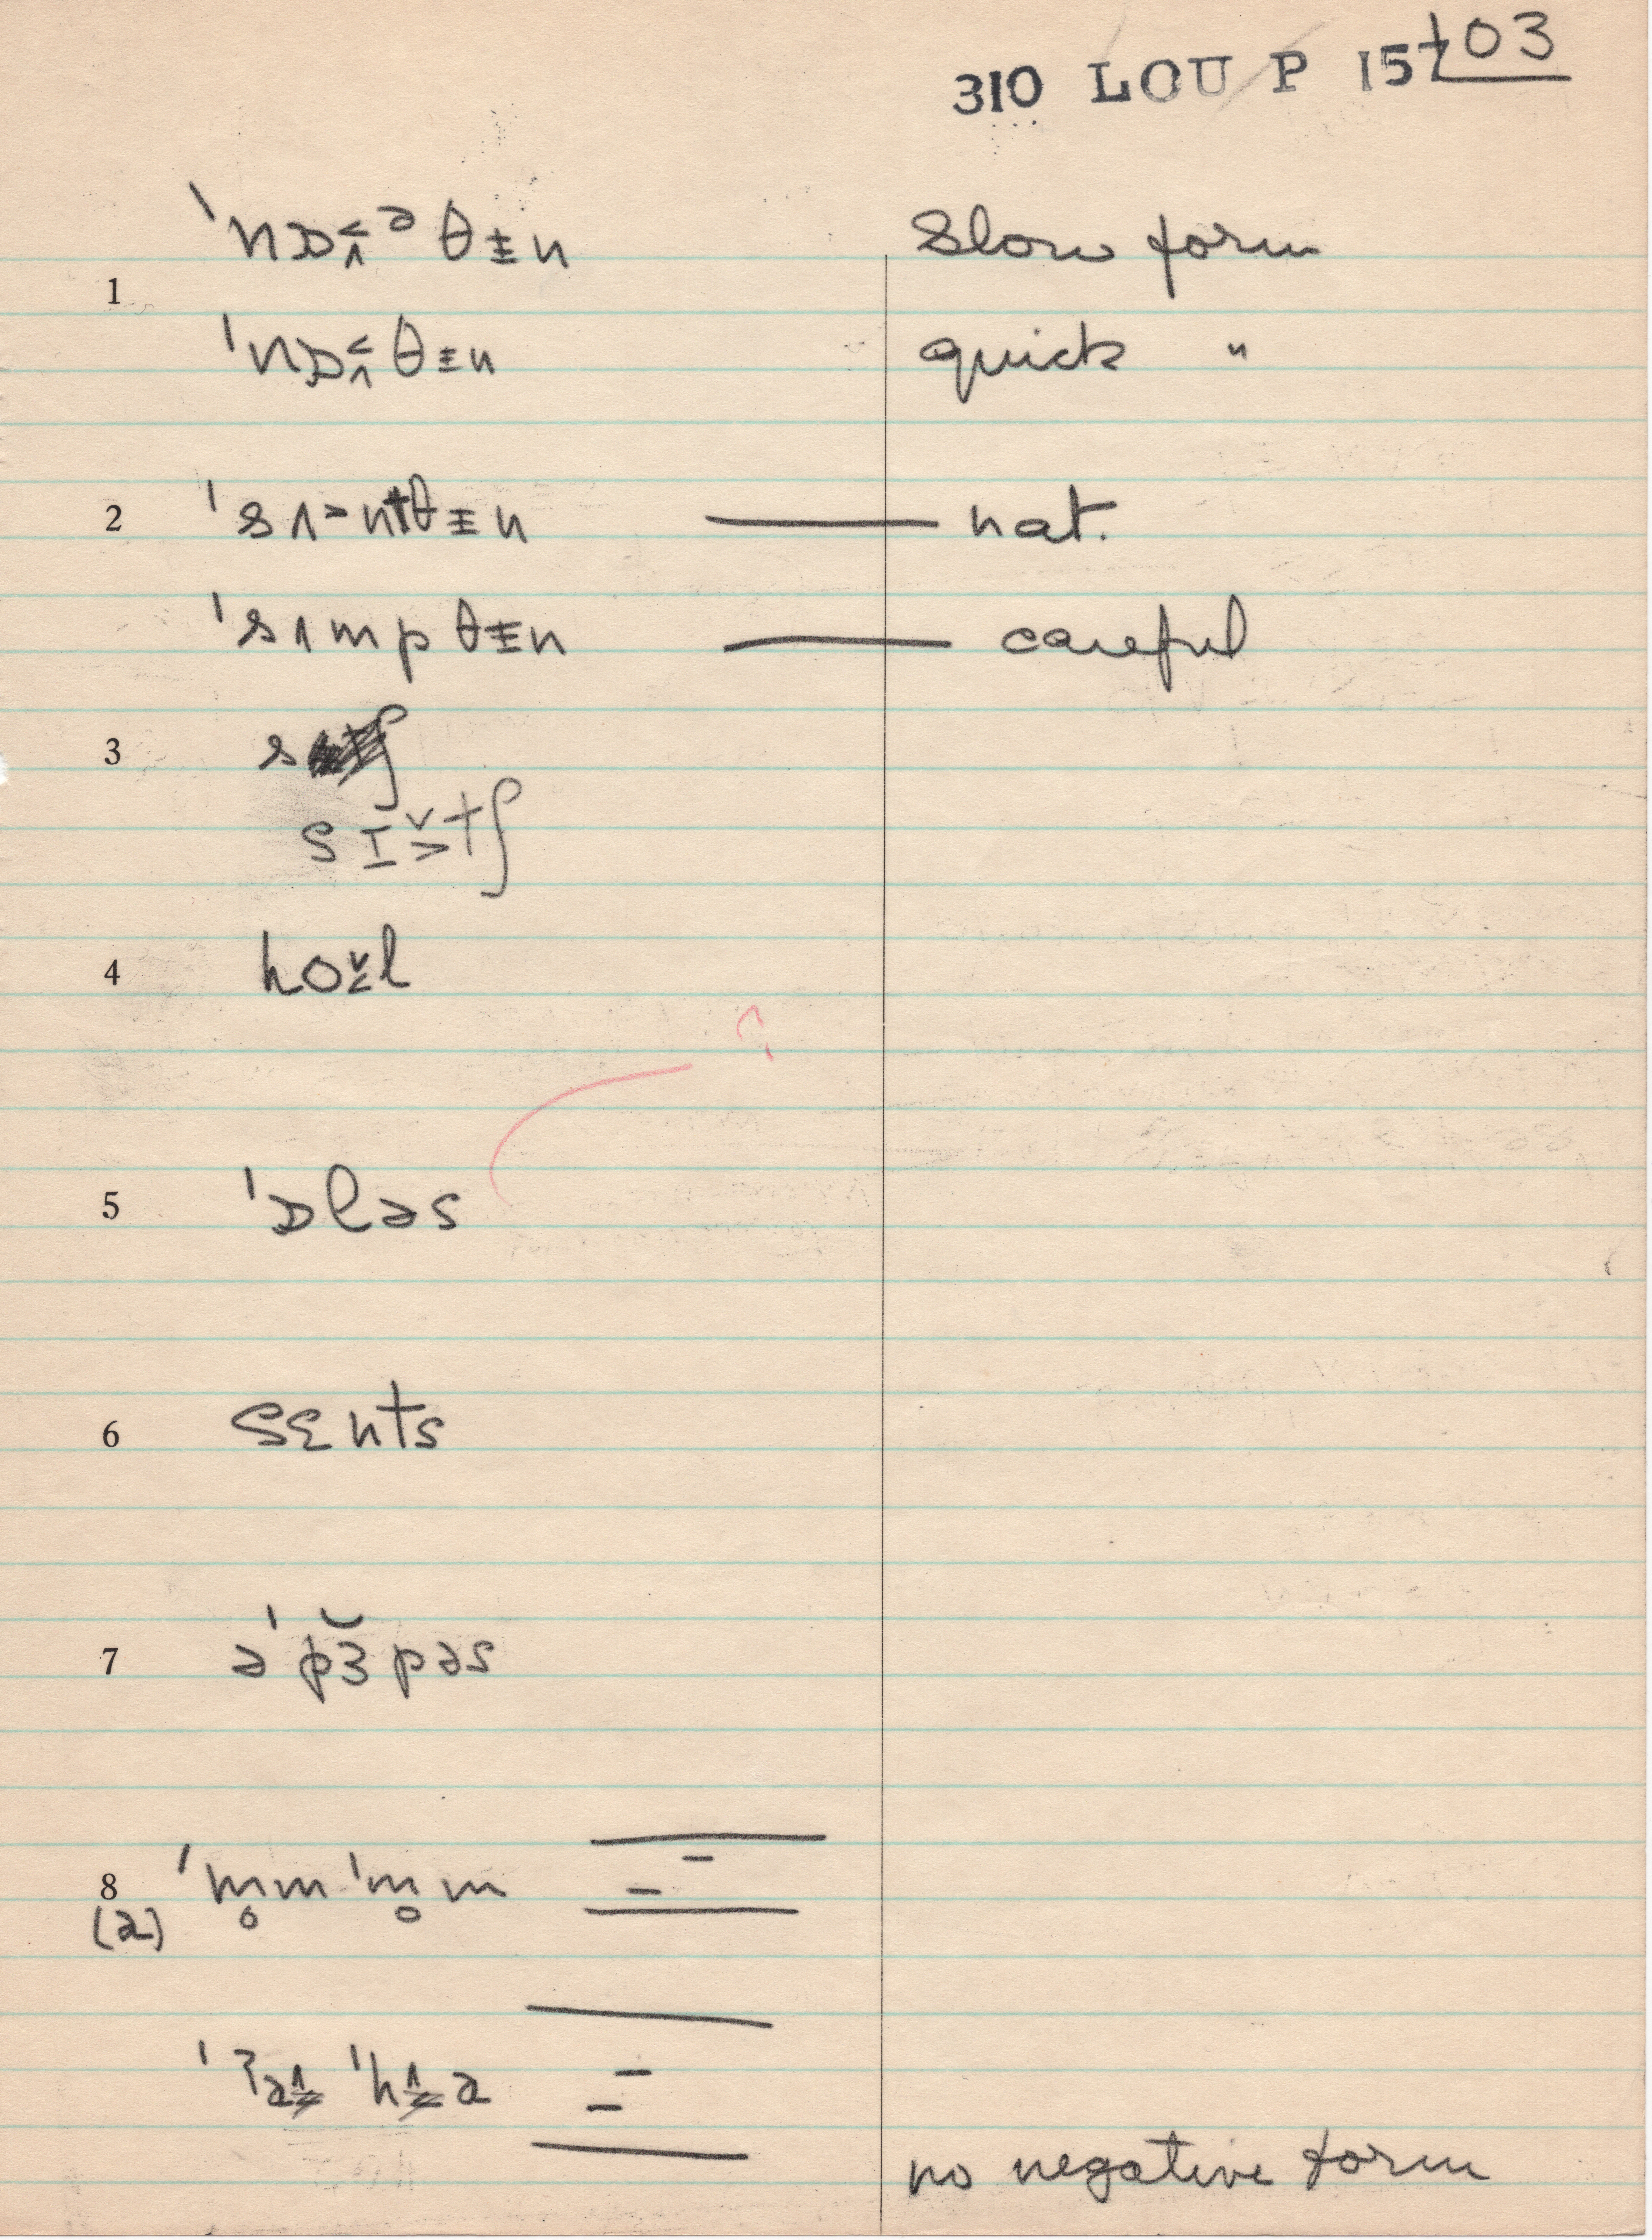 310 LOU P 157 103
ˈnɒ˂˄ᵊθɨn Slow form
1
ˈnɒ˂˄θɨn quick "
2 ˈsʌ˃ntθɨn — nat.
ˈsʌmpθɨn — careful
3 s
sɪ˅˃tʃ
4 ho˅˂l
?
5 ˈɒləs
6 sɛnts
7 əˈpɜ̆pəs
8 ˈm̥mˈm̥m
(2)
no negative form